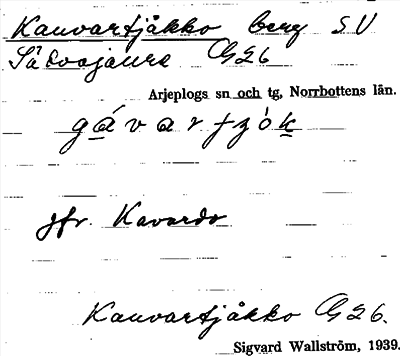 Kauvartjåkko berg SV
Sädvajaure G26
Arjeplogs sn och tg, Norrbottens län.
gávartjók
jfr. Kavardo
Kauvartjåkko G26.
Sigvard Wallström, 1939.